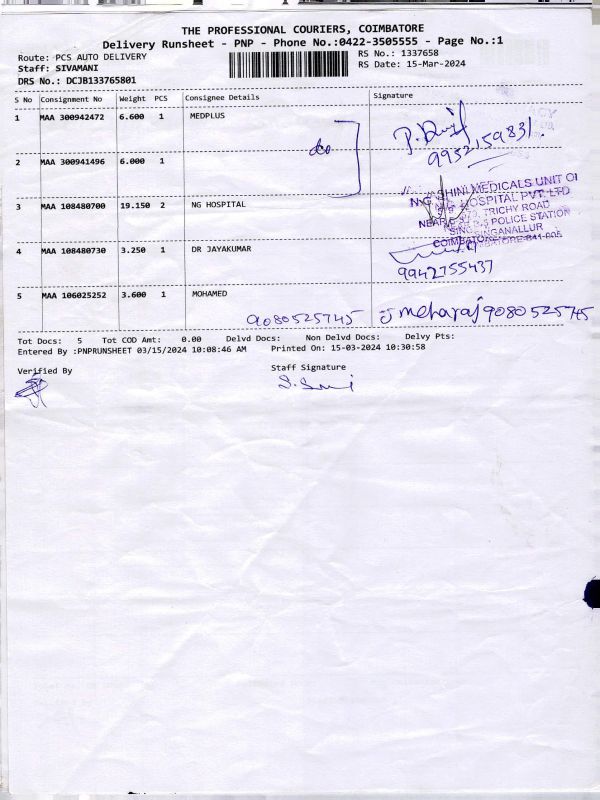 THE PROFESSIONAL COURIERS, COIMBATORE
Delivery Runsheet - PNP - Phone No.:0422-3505555 - Page No.:1
Route: PCS AUTO DELIVERY
RS No.: 1337658
Staff: SIVAMANI
RS Date: 15-Mar-2024
DRS No.: DCJB133765801
S No Consignment No Weight PCS Consignee Details Signature
1 MAA 300942472 6.600 1 MEDPLUS
9952159831.
do
2 MAA 300941496 6.000 1
3 MAA 108480700 19.150 2 NG HOSPITAL
SHINI MEDICALS UNIT OF
N.G. HOSPITAL PVT. LTD
TRICHY ROAD
NEAR POLICE STATION
SINGANALLUR
COIMBATORE
4 MAA 108480730 3.250 1 DR JAYAKUMAR
9942755437
5 MAA 106025252 3.600 1 MOHAMED
9080525745 meharaj 9080525745
Tot Docs: 5 Tot COD Amt: 0.00 Delvd Docs: Non Delvd Docs: Delvy Pts:
Entered By :PNPRUNSHEET 03/15/2024 10:08:46 AM Printed On: 15-03-2024 10:30:58
Verified By Staff Signature